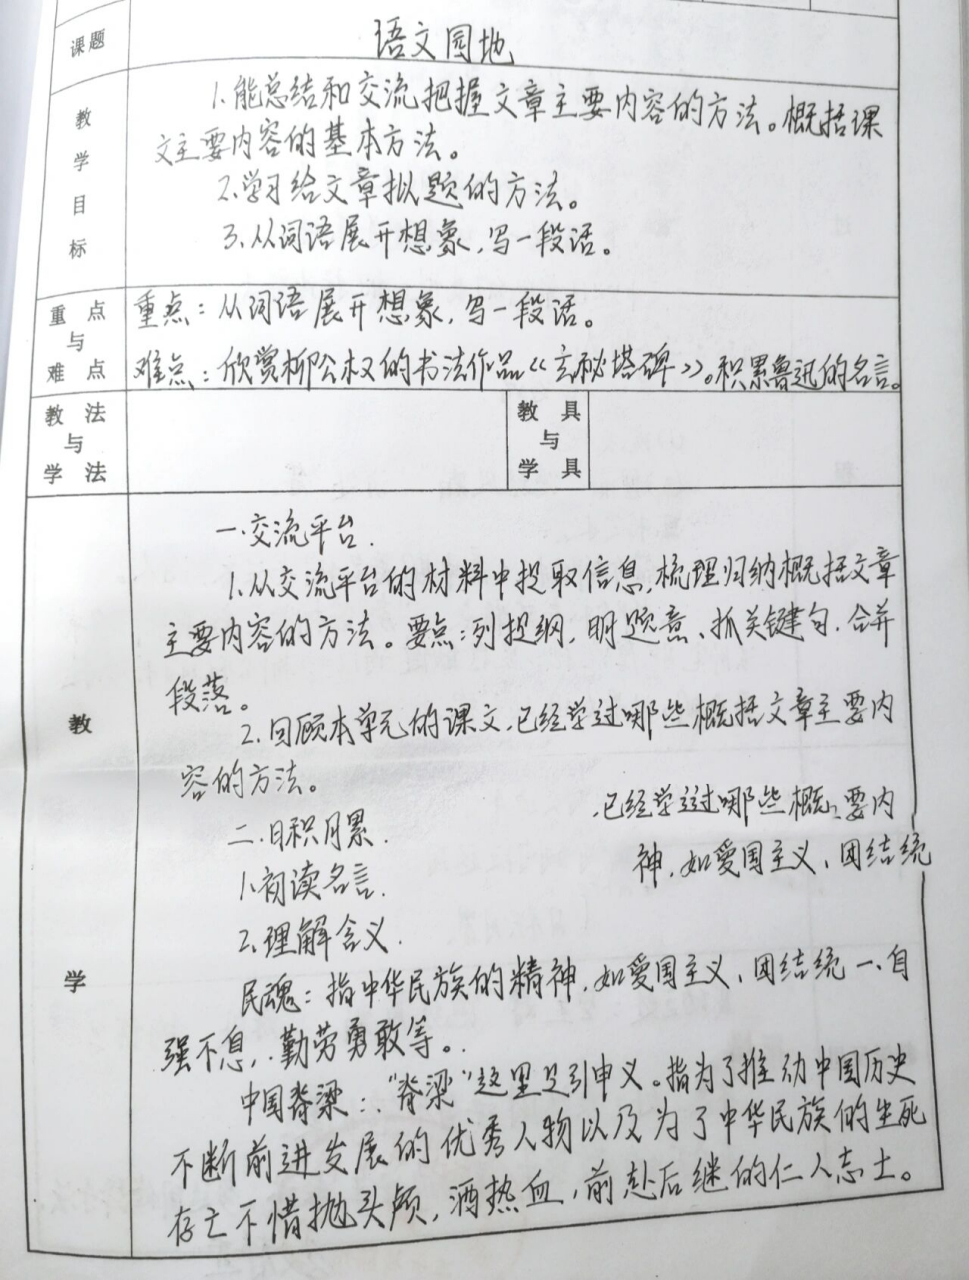 课题
语文园地
教学目标
1.能总结和交流把握文章主要内容的方法。概括课
文主要内容的基本方法。
2.学习给文章拟题的方法。
3.从词语展开想象,写一段话。
重点与难点
重点:从词语展开想象,写一段话。
难点:欣赏柳公权的书法作品《玄秘塔碑》。积累鲁迅的名言。
教法与学法
教具与学具
教学
一.交流平台.
1.从交流平台的材料中提取信息,梳理归纳概括文章
主要内容的方法。要点:列提纲,明题意、抓关键句.合并
段落。
2.回顾本单元的课文.已经学过哪些概括文章主要内
容的方法。
.已经学过哪些概 要内
二.日积月累.
神.如爱国主义、团结统
1.初读名言.
2.理解含义.
民魂:指中华民族的精神.如爱国主义、团结统一、自
强不息,.勤劳勇敢等。.
中国脊梁:."脊梁"这里是引申义。指为了推动中国历史
不断前进发展的优秀人物以及为了中华民族的生死
存亡不惜抛头颅,洒热血,前赴后继的仁人志士。